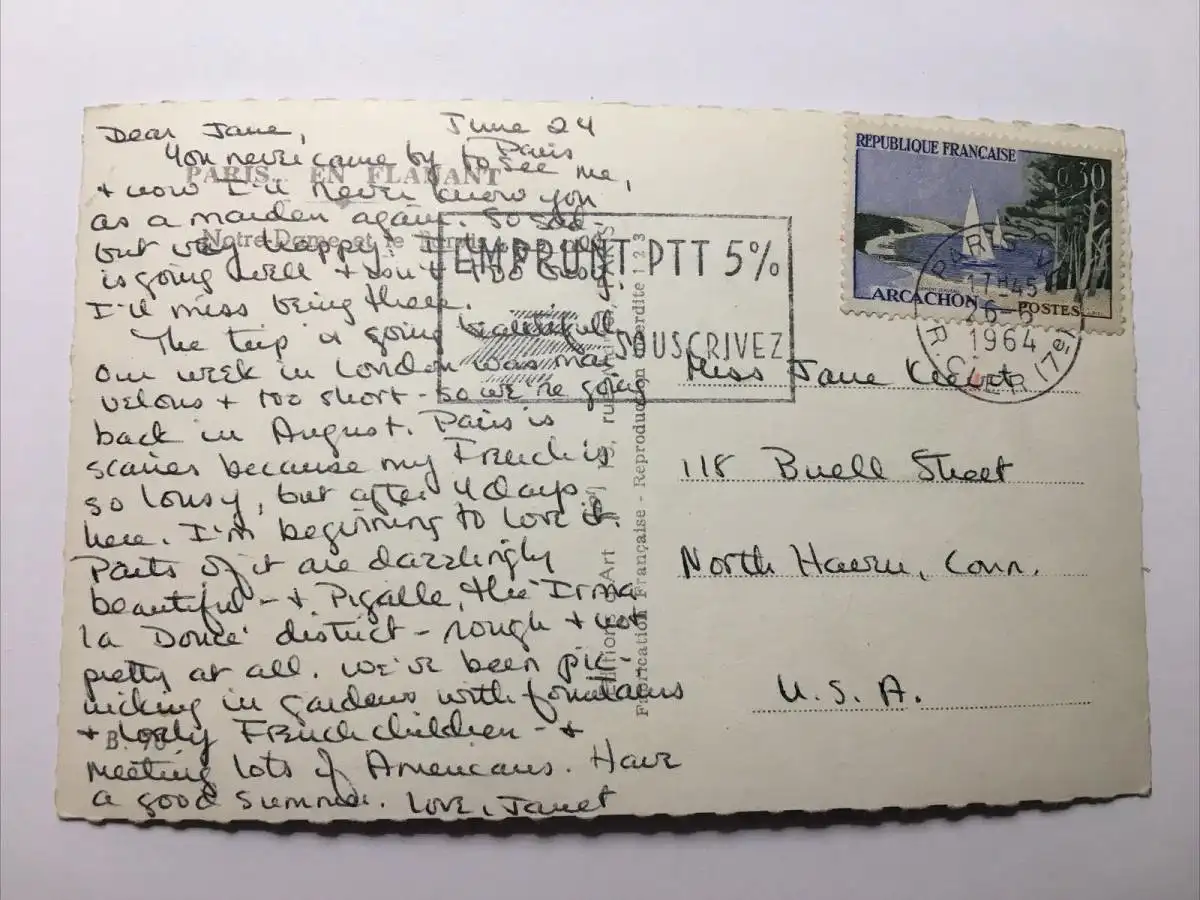 Dear Jane, June 24
Paris
You never came by to see me,
+ now I'll never know you
as a maiden again. So sad -
but very happy! I
is going well + don't
I'll miss being there.
The trip is going beautifully
Our week in London was mar-
velous + too short - so we're going
back in August. Paris is
scarier because my French is
so lousy, but after 4 days
here. I'm beginning to love it.
Parts of it are dazzlingly
beautiful - + Pigalle, the 'Irma
la Douce' district - rough + not
pretty at all. We've been pic-
nicking in gardens with fountains
+ lovely French children - +
meeting lots of Americans. Have
a good summer. Love, Janet
PARIS EN FLANANT
Notre-Dame et le
B. 98
Editions d'Art
Fabrication Française - Reproduction interdite 1 2 3
EMPRUNT PTT 5%
SOUSCRIVEZ
REPUBLIQUE FRANÇAISE
0,30
ARCACHON
POSTES
PARIS
17H45
26-6
1964
(17e)
Miss Jane
118 Buell Street
North Haven, Conn.
U.S.A.